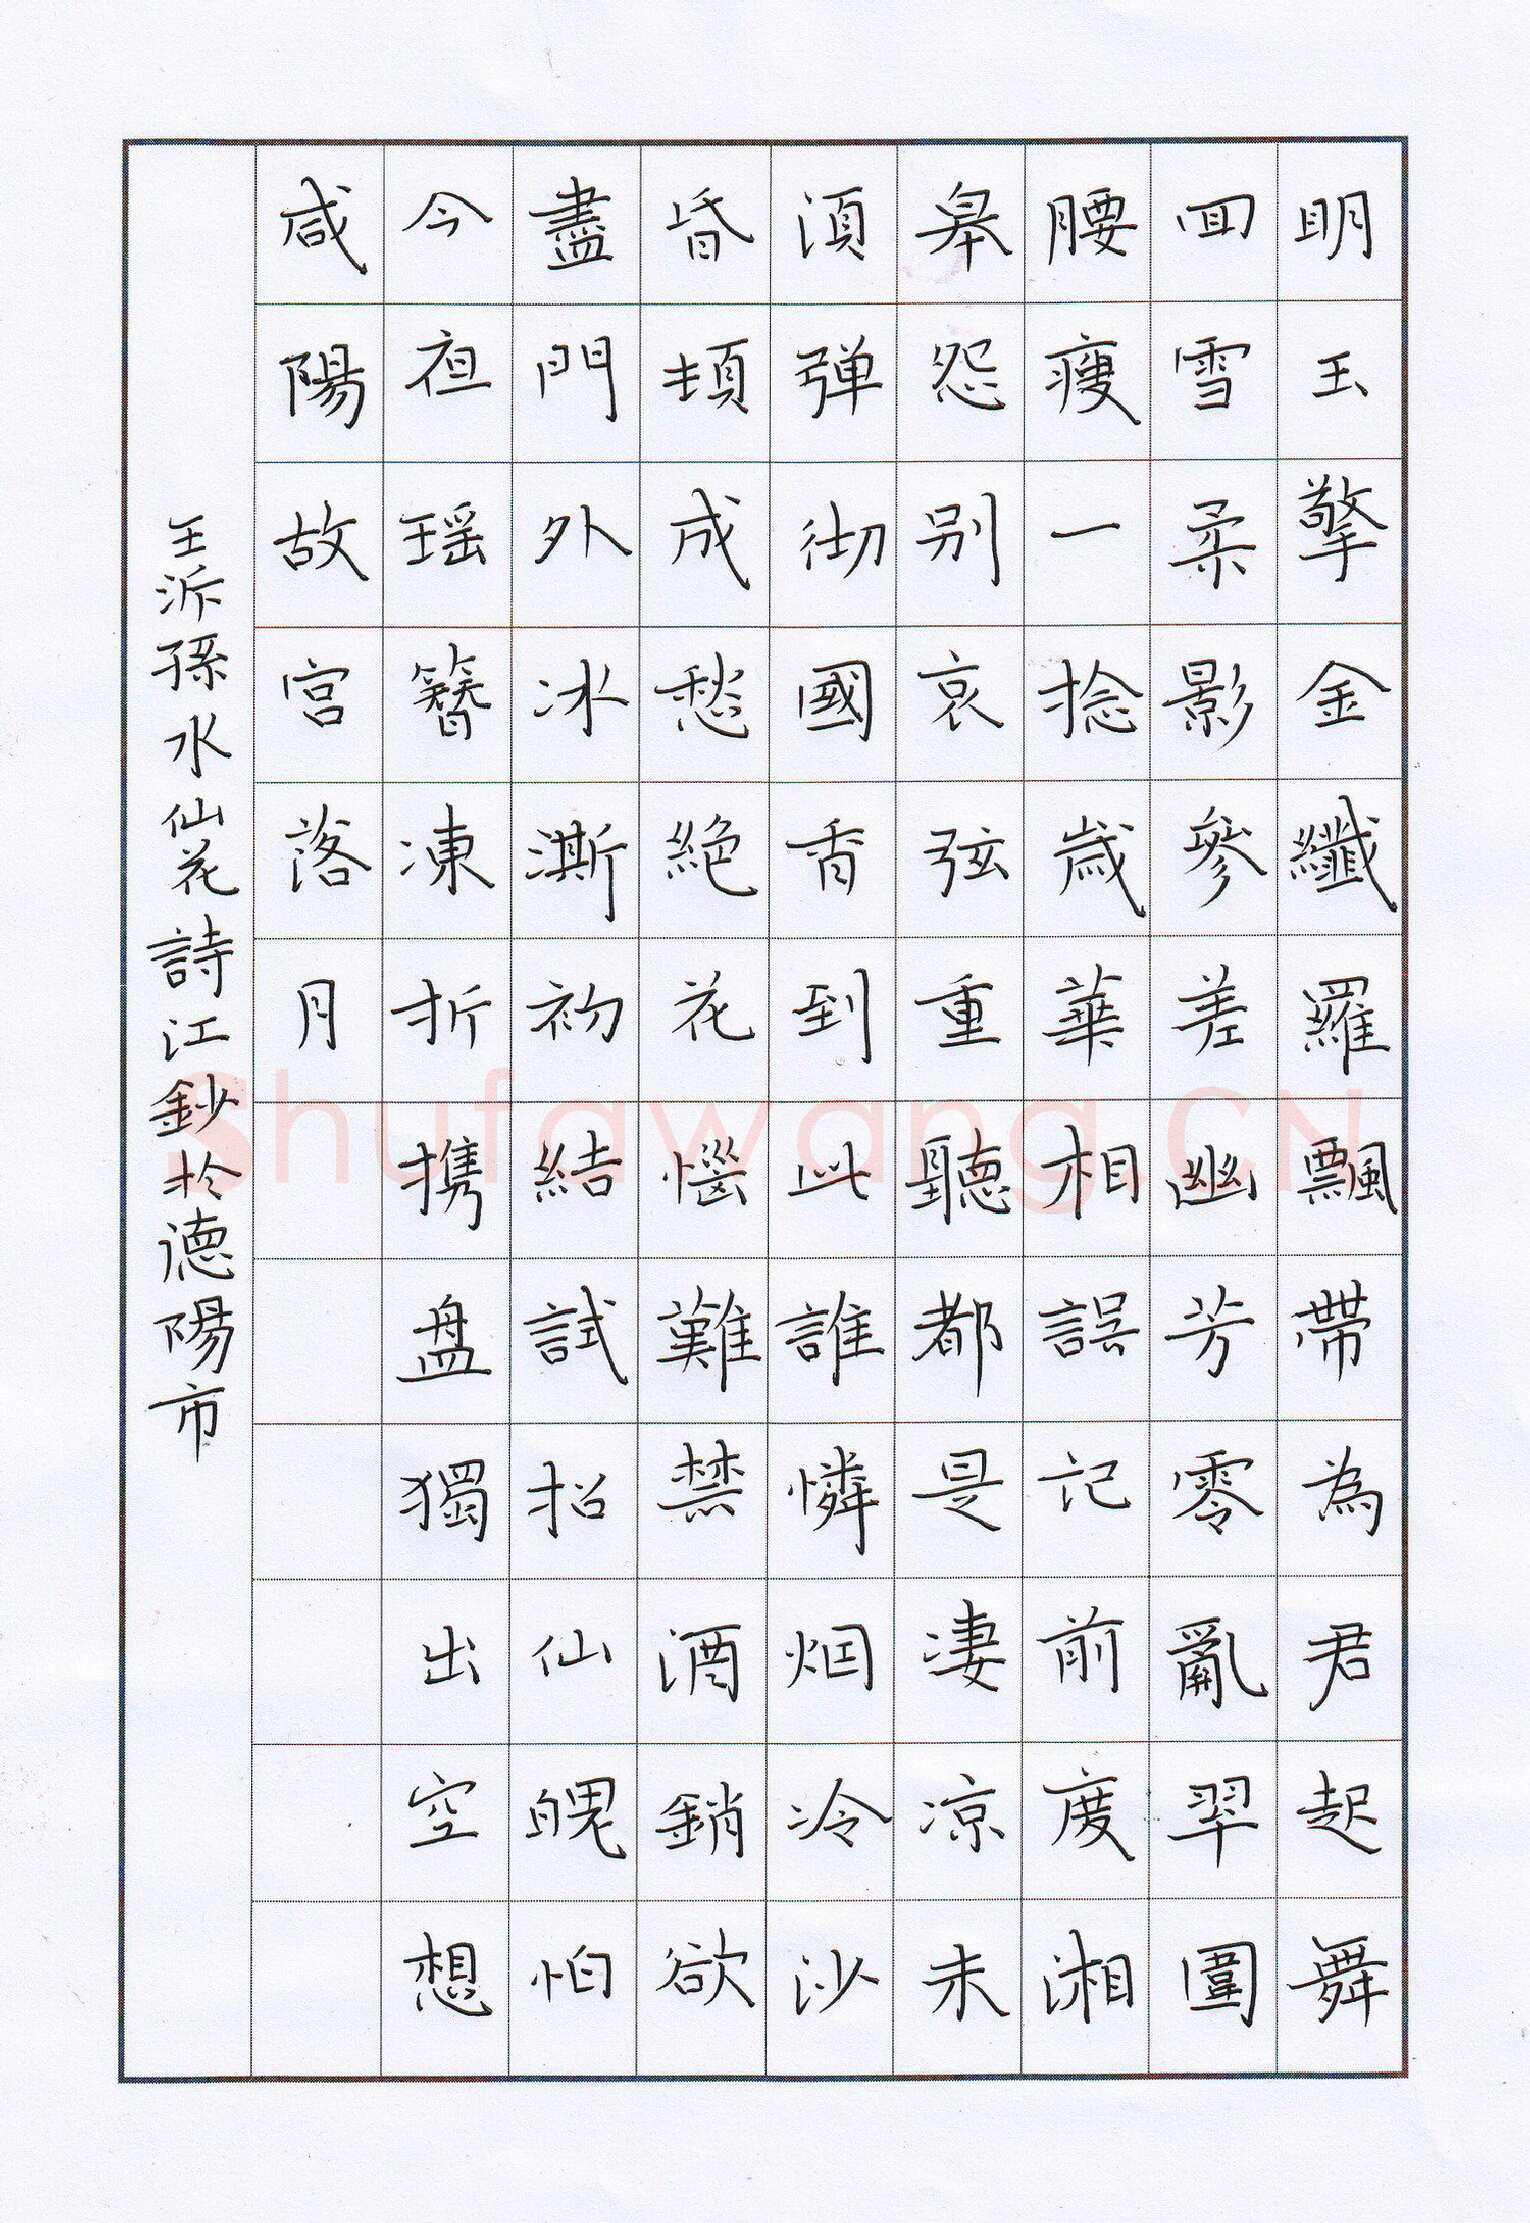 明玉擎金纖羅飄帶為君起舞
回雪柔影參差幽芳零亂翠圍
腰瘦一捻歲華相誤記前度湘
皋怨别哀弦重聽都是凄凉未
須弹彻國香到此誰憐烟冷沙
昏頓成愁絶花惱難禁酒銷欲
盡門外冰澌初結試招仙魄怕
今夜瑶簪凍折携盘獨出空想
咸陽故宫落月
王沂孫水仙花詩江鈔於德陽市
Shufawang.CN